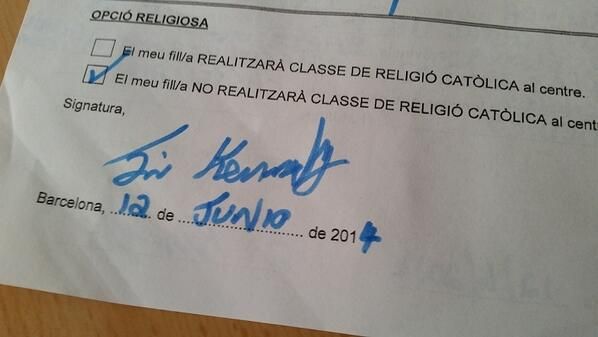 OPCIÓ RELIGIOSA
El meu fill/a REALITZARÀ CLASSE DE RELIGIÓ CATÒLICA al centre.
El meu fill/a NO REALITZARÀ CLASSE DE RELIGIÓ CATÒLICA al cent
Signatura,
Barcelona, 12 de JUNIO de 2014